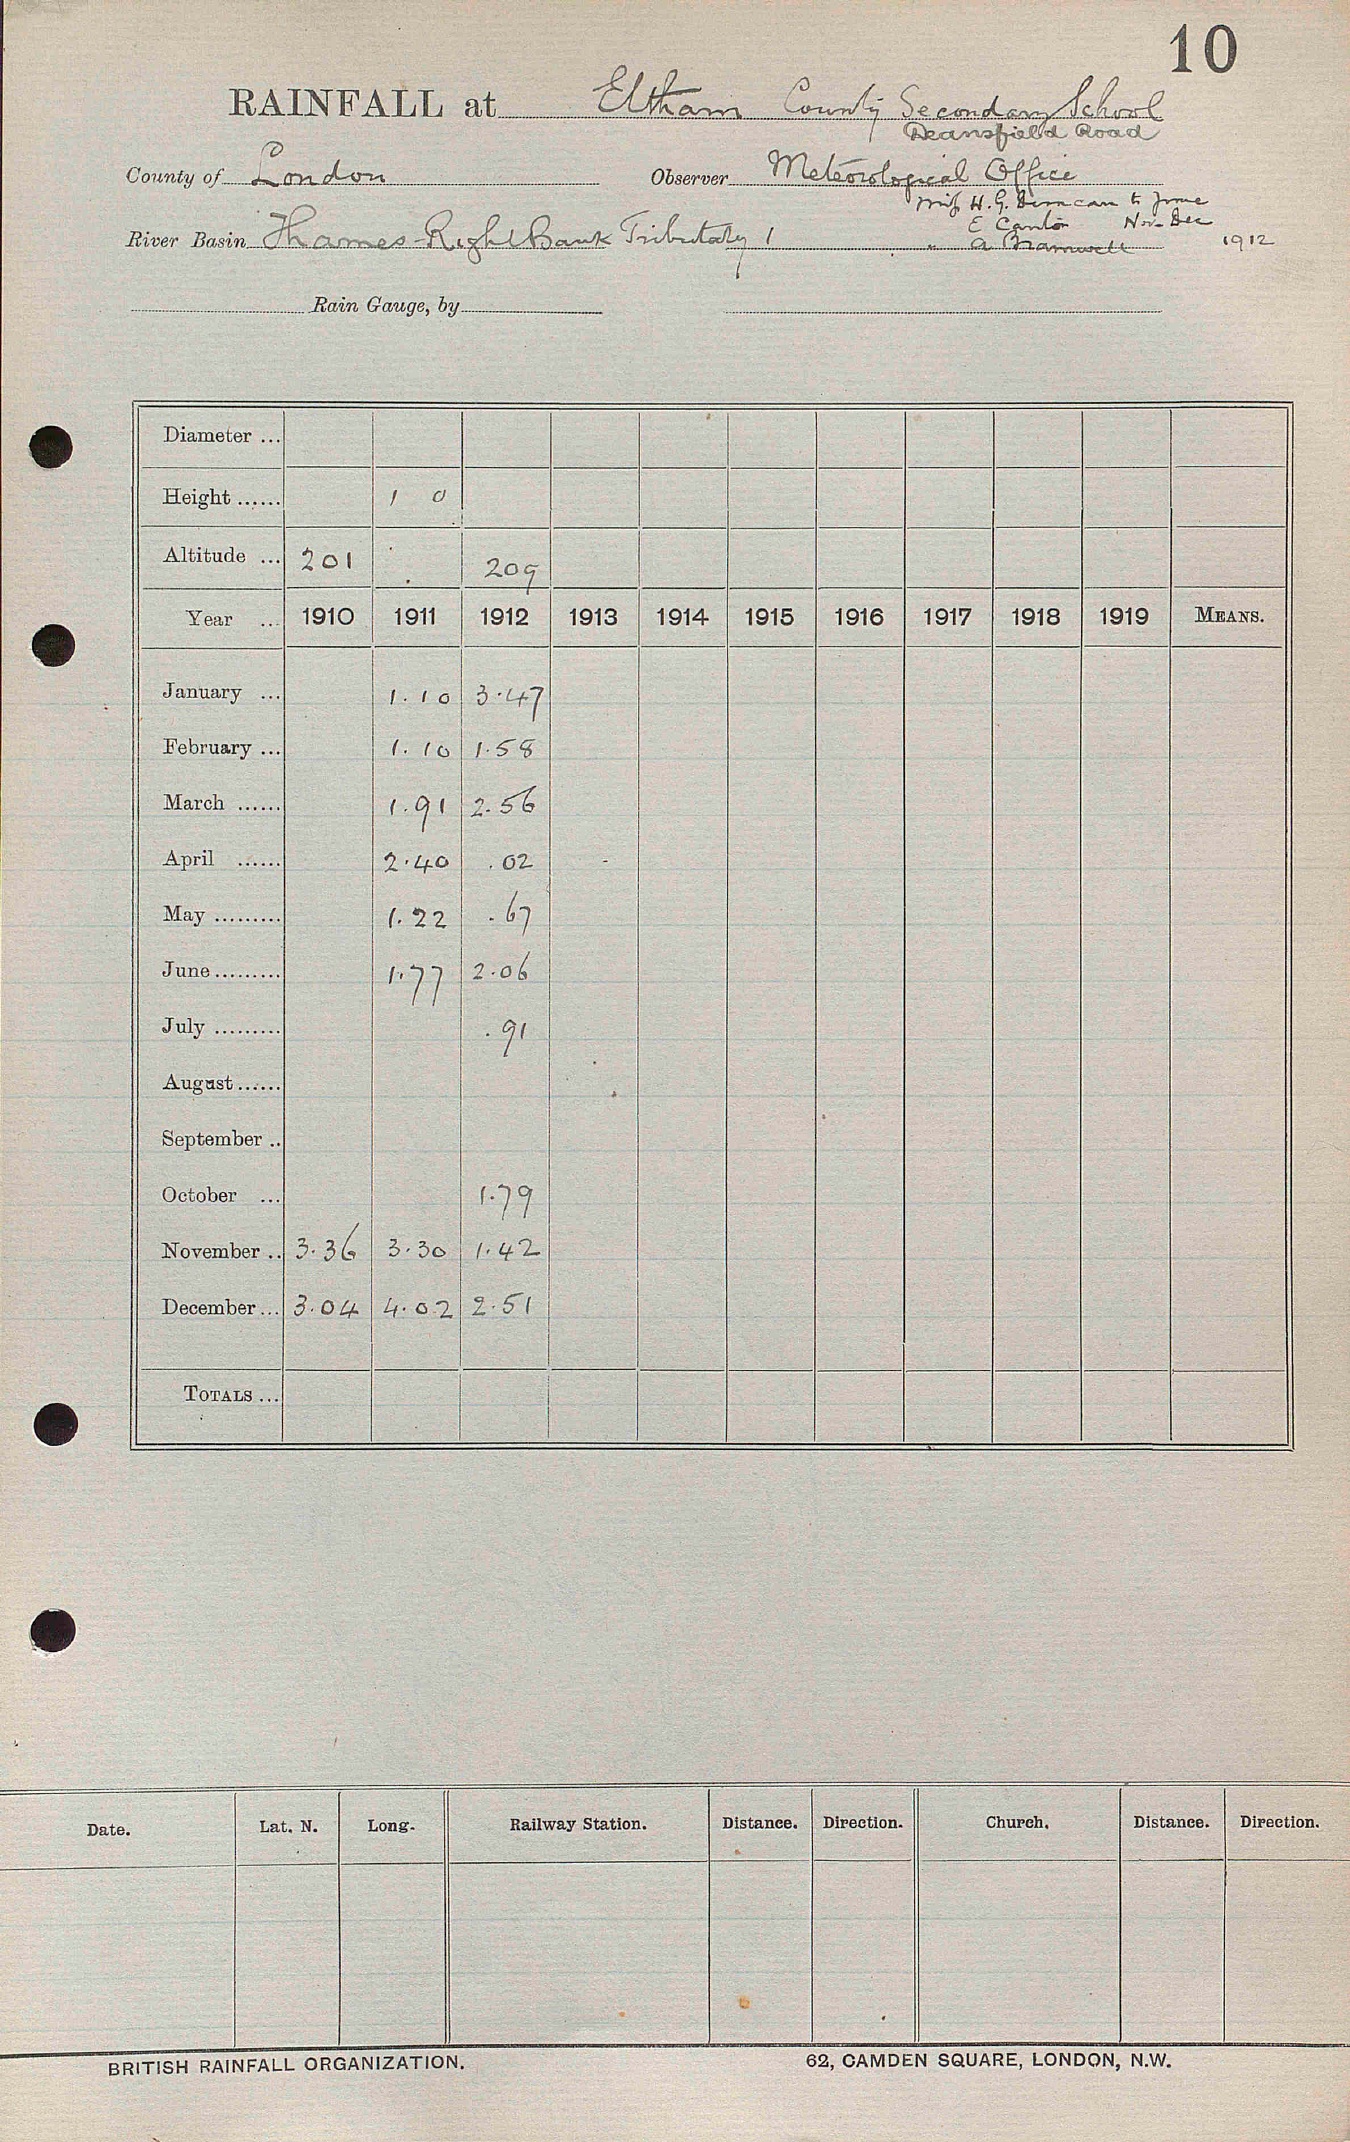 10
RAINFALL at Eltham County Secondary School
Deansfield Road
County of London Observer Meteorological Office
Miss H. G. Duncan to June
E Canton Nov-Dec
River Basin Thames-Right Bank Tributary 1 " A Bramwell 1912
Rain Gauge, by
Diameter ...
Height ...... 1 0
Altitude ... 201 209
Year ... 1910 1911 1912 1913 1914 1915 1916 1917 1918 1919 MEANS.
January ... 1.10 3.47
February ... 1.10 1.58
March ...... 1.91 2.56
April ...... 2.40 .02
May ......... 1.22 .67
June ......... 1.77 2.06
July ......... .91
August ......
September ..
October ... 1.79
November .. 3.36 3.30 1.42
December ... 3.04 4.02 2.51
TOTALS ...
Date. Lat. N. Long. Railway Station. Distance. Direction. Church. Distance. Direction.
BRITISH RAINFALL ORGANIZATION. 62, CAMDEN SQUARE, LONDON, N.W.